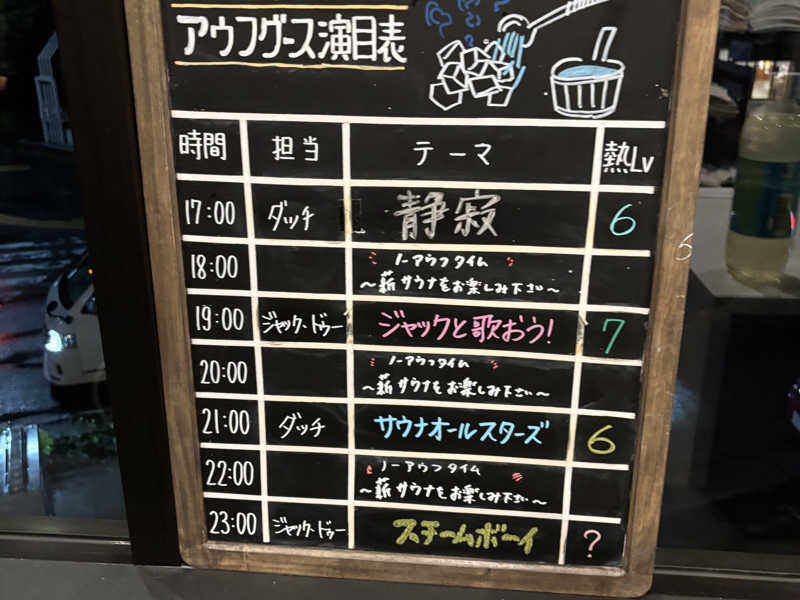 アウフグース演目表
時間 担当 テーマ 熱Lv
17:00 ダッチ 静寂 6
18:00 ノーアウフタイム
～薪サウナをお楽しみ下さい～
19:00 ジャック・ドゥー ジャックと歌おう! 7
20:00 ノーアウフタイム
～薪サウナをお楽しみ下さい～
21:00 ダッチ サウナオールスターズ 6
22:00 ノーアウフタイム
～薪サウナをお楽しみ下さい～
23:00 ジャック・ドゥー スチームボーイ ?